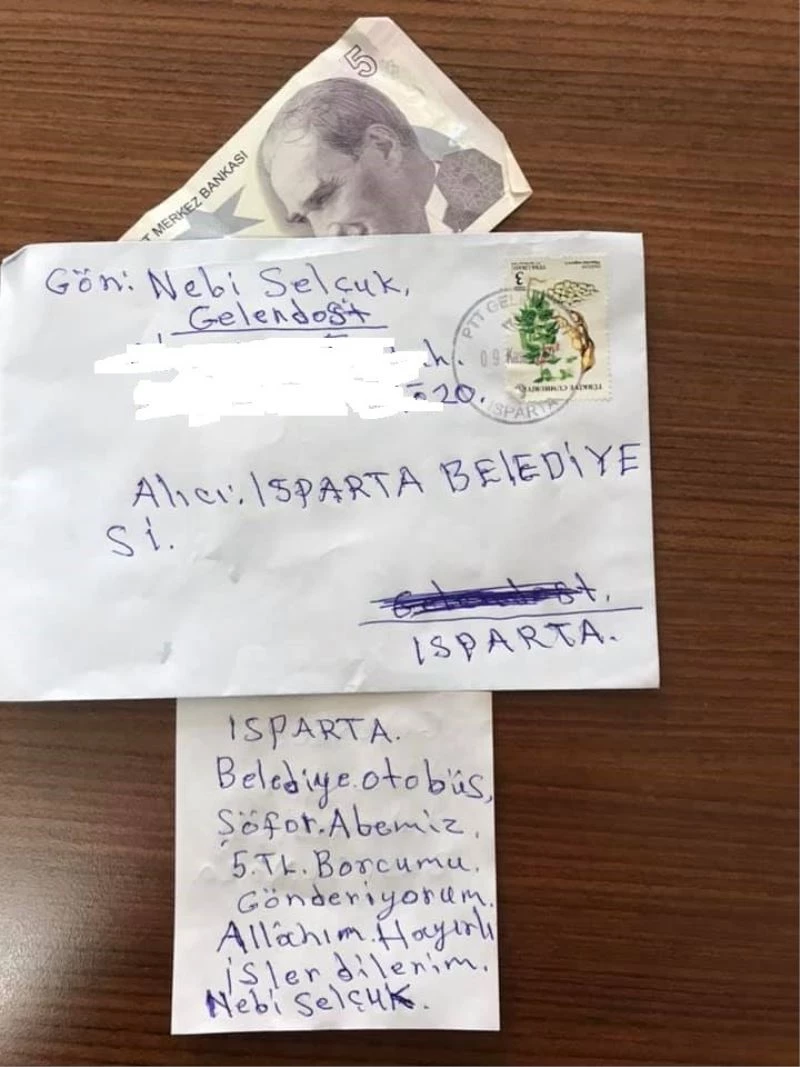 5
T MERKEZ BANKASI
Gön: Nebi Selçuk,
Gelendost
h.
20.
3
PTT GEL
09 Kas
ISPARTA
TÜRKİYE CUMHURİYETİ
Alıcı: ISPARTA BELEDİYE
Sİ.
ISPARTA.
ISPARTA.
Belediye.otobüs,
Şöför.Abemiz,
5.TL. Borcumu.
Gönderiyorum.
Allâhım.Hayırlı
işler dilerim.
Nebi Selçuk.